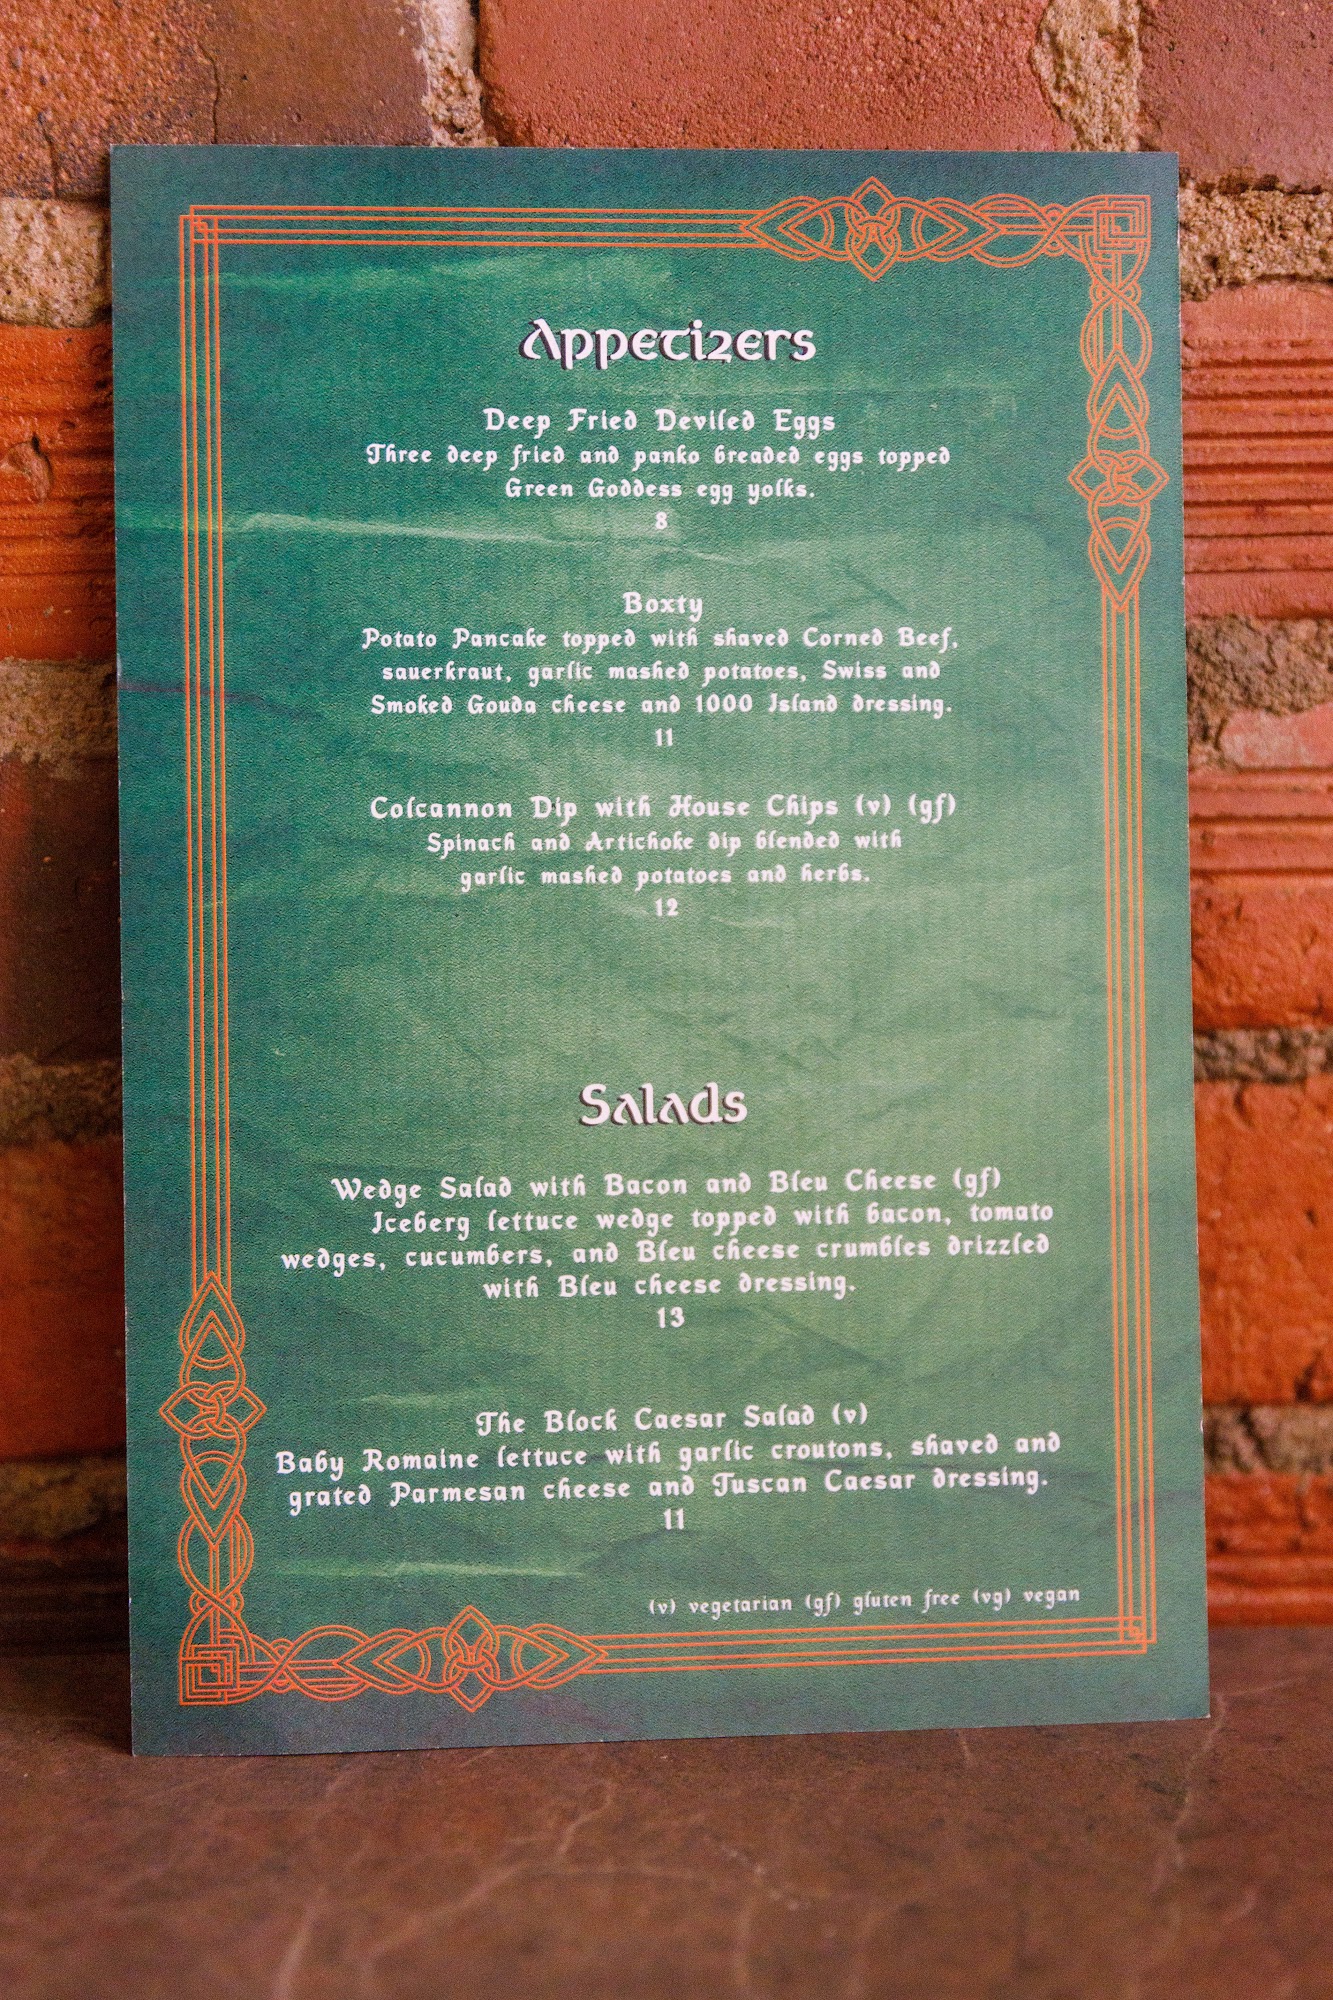 Appetizers
Deep Fried Deviled Eggs
Three deep fried and panko breaded eggs topped
Green Goddess egg yolks.
8
Boxty
Potato Pancake topped with shaved Corned Beef,
sauerkraut, garlic mashed potatoes, Swiss and
Smoked Gouda cheese and 1000 Island dressing.
11
Colcannon Dip with House Chips (v) (gf)
Spinach and Artichoke dip blended with
garlic mashed potatoes and herbs.
12
Salads
Wedge Salad with Bacon and Bleu Cheese (gf)
Iceberg lettuce wedge topped with bacon, tomato
wedges, cucumbers, and Bleu cheese crumbles drizzled
with Bleu cheese dressing.
13
The Block Caesar Salad (v)
Baby Romaine lettuce with garlic croutons, shaved and
grated Parmesan cheese and Tuscan Caesar dressing.
11
(v) vegetarian (gf) gluten free (vg) vegan